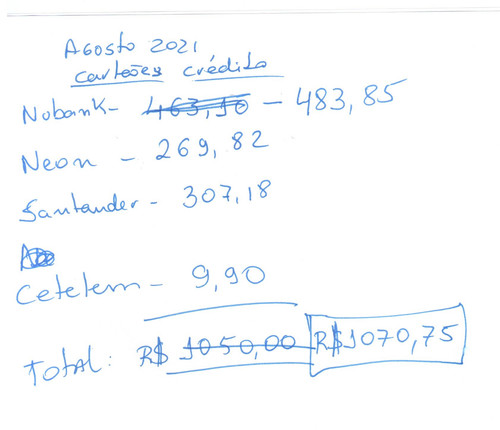 Agosto 2021
cartões crédito
Nubank - 463,10 - 483,85
Neon - 269,82
Santander - 307,18
Cetelem - 9,90
Total: R$ 1050,00 R$1070,75